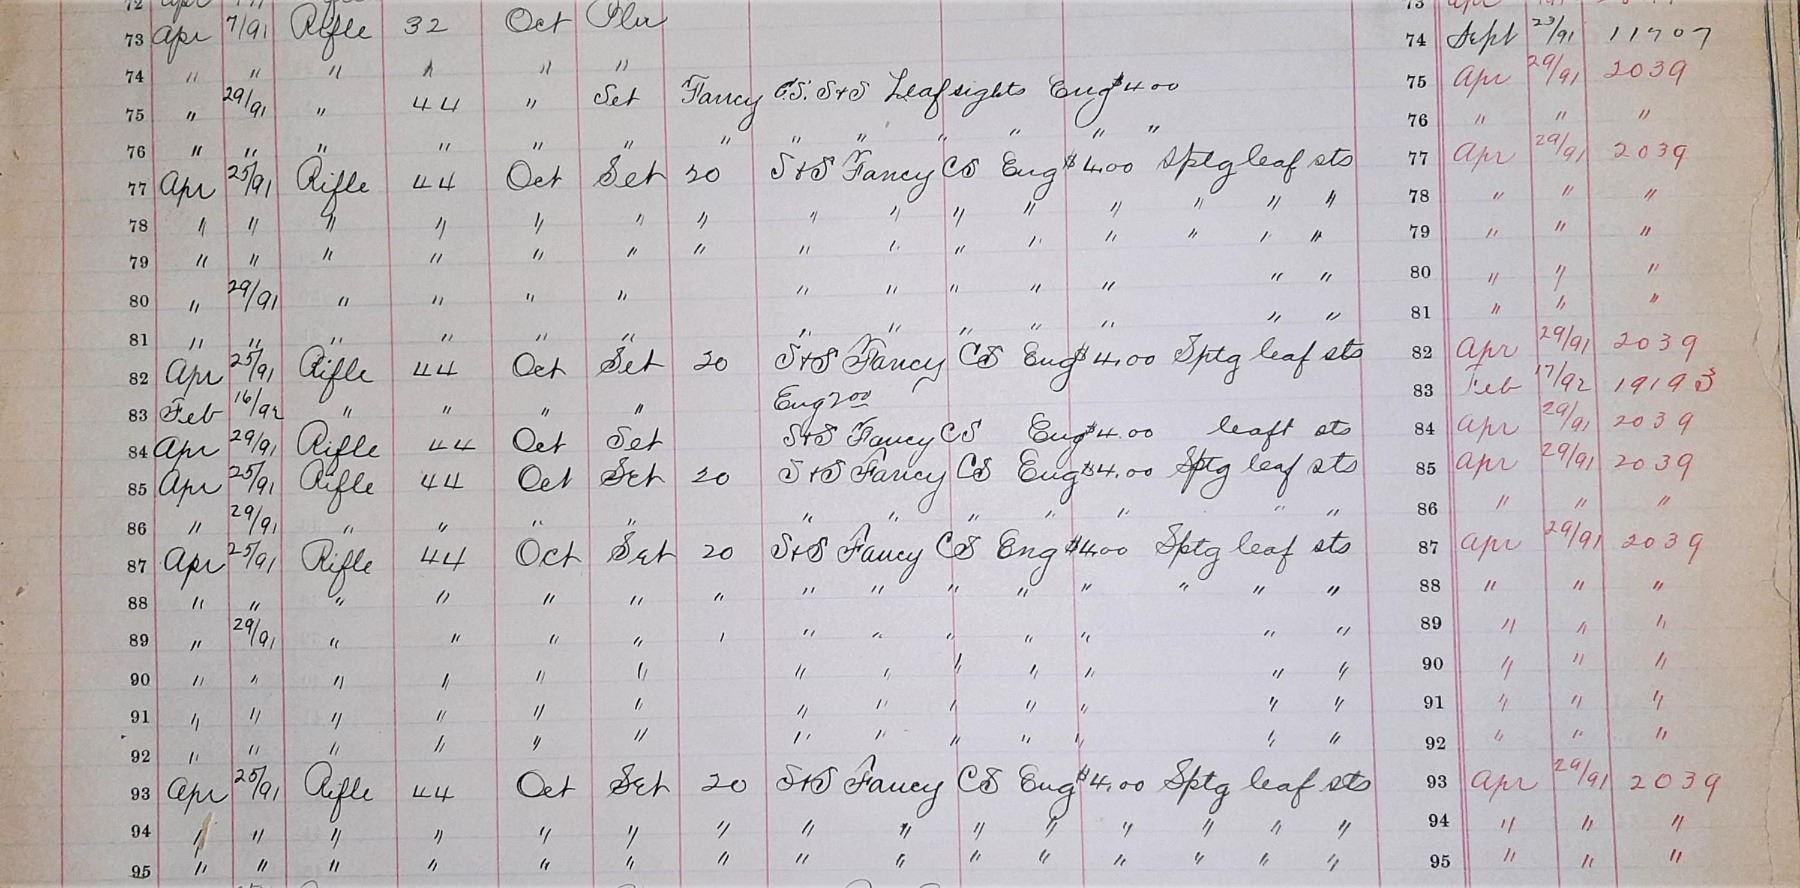 73 Apr 7/91 Rifle 32 Oct Pln
74 " " " " " " 74 Sept 23/91 11707
75 " 29/91 " 44 " Set Fancy C.S. S+S Leaf sights Eng $4 00 75 Apr 29/91 2039
76 " " " " " " " " " " " " " 76 " " "
77 Apr 25/91 Rifle 44 Oct Set 20 S+S Fancy CS Eng $4.00 Sptg leaf sts 77 Apr 29/91 2039
78 " " " " " " " " " " " " " " " 78 " " "
79 " " " " " " " " " " " " " " " 79 " " "
80 " 29/91 " " " " " " " " " " " 80 " " "
81 " " " " " " " " " " " " " 81 " " "
82 Apr 25/91 Rifle 44 Oct Set 20 S+S Fancy CS Eng $4.00 Sptg leaf sts 82 Apr 29/91 2039
83 Feb 16/92 " " " " Eng 2 00 83 Feb 17/92 19193
84 Apr 29/91 Rifle 44 Oct Set S+S Fancy CS Eng $4.00 leaft sts 84 Apr 29/91 2039
85 Apr 25/91 Rifle 44 Oct Set 20 S+S Fancy CS Eng $4.00 Sptg leaf sts 85 Apr 29/91 2039
86 " 29/91 " " " " " " " " " " " 86 " " "
87 Apr 25/91 Rifle 44 Oct Set 20 S+S Fancy CS Eng $4.00 Sptg leaf sts 87 Apr 29/91 2039
88 " " " " " " " " " " " " " " " 88 " " "
89 " 29/91 " " " " " " " " " " " " 89 " " "
90 " " " " " " " " " " " " " 90 " " "
91 " " " " " " " " " " " " " 91 " " "
92 " " " " " " " " " " " " " 92 " " "
93 Apr 25/91 Rifle 44 Oct Set 20 S+S Fancy CS Eng $4.00 Sptg leaf sts 93 Apr 29/91 2039
94 " " " " " " " " " " " " " " " 94 " " "
95 " " " " " " " " " " " " " " " 95 " " "